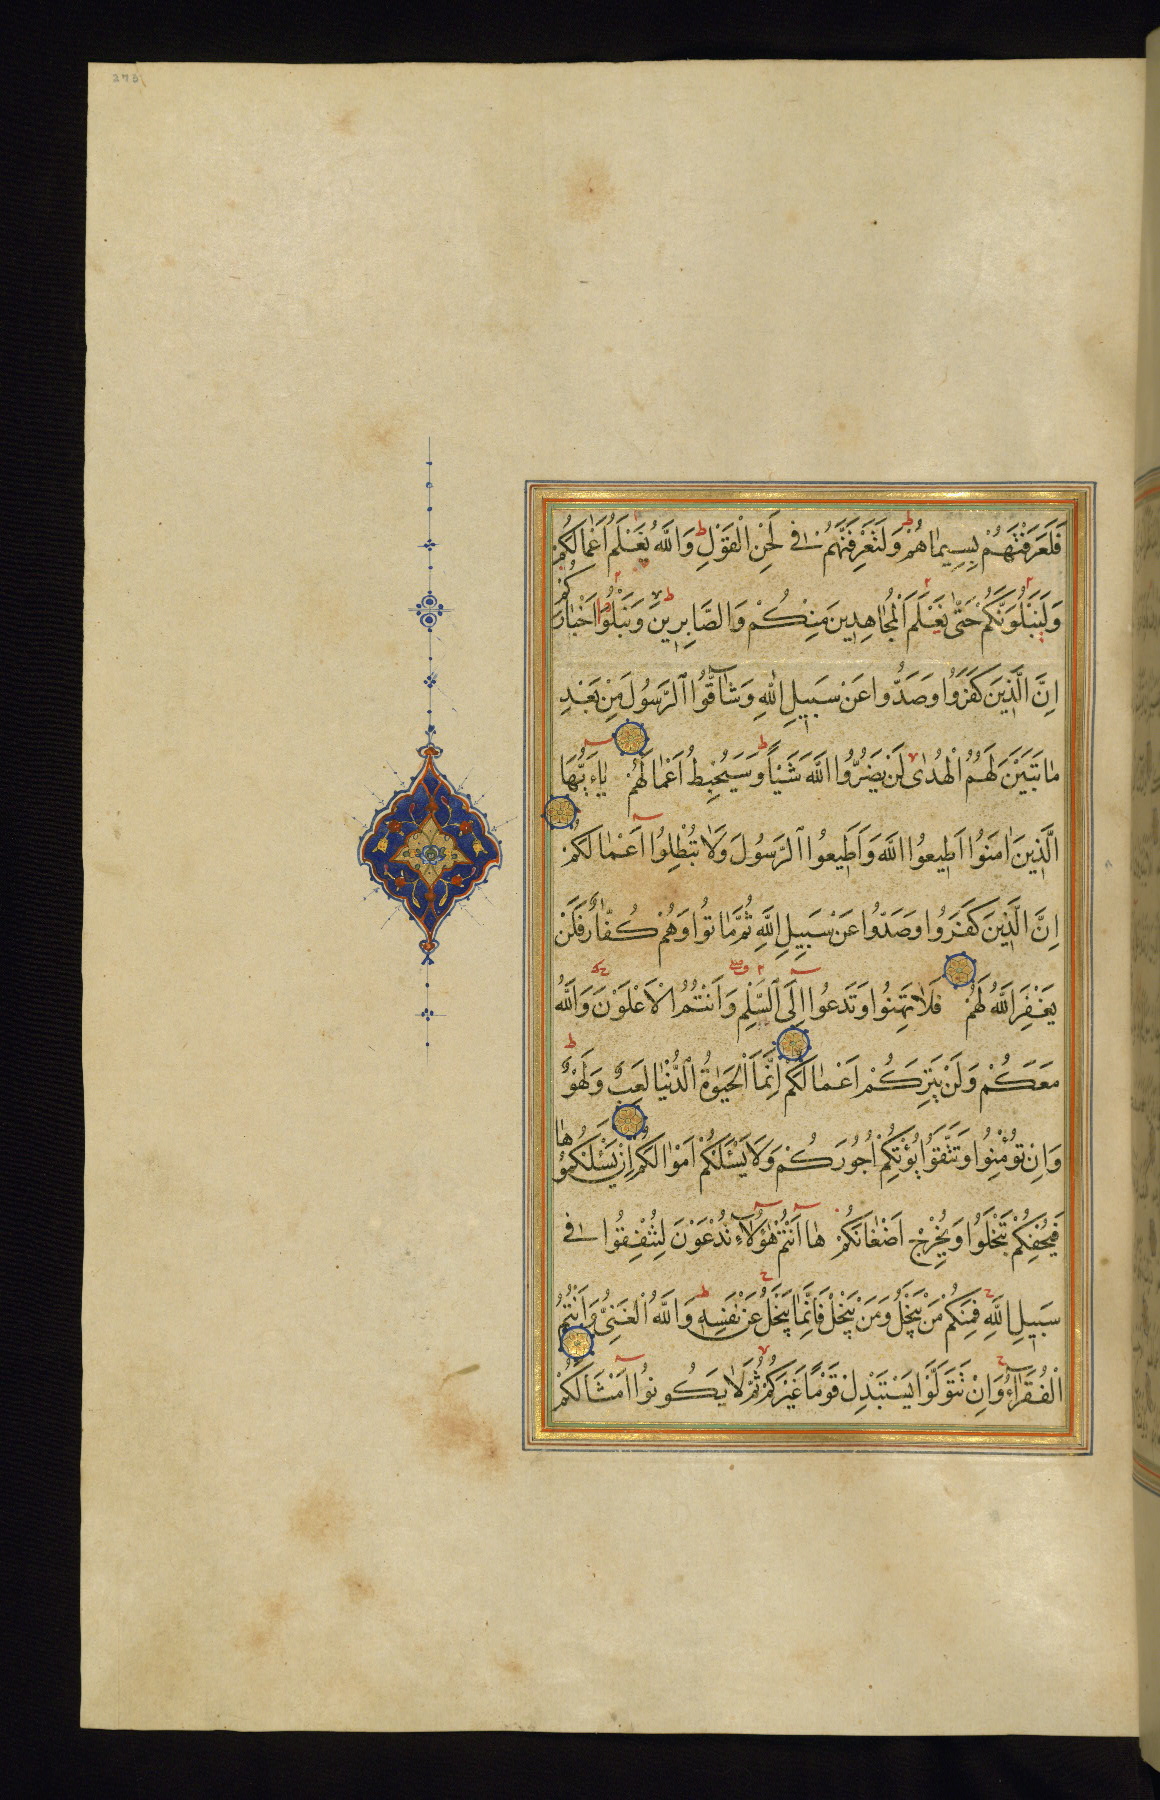 فَلَعَرَفْتَهُمْ بِسِيمَاهُمْ وَلَتَعْرِفَنَّهُمْ فِي لَحْنِ الْقَوْلِ وَاللَّهُ يَعْلَمُ أَعْمَالَكُمْ
وَلَنَبْلُوَنَّكُمْ حَتَّى نَعْلَمَ الْمُجَاهِدِينَ مِنْكُمْ وَالصَّابِرِينَ وَنَبْلُوَا أَخْبَارَكُمْ
اِنَّ الَّذِينَ كَفَرُوا وَصَدُّوا عَنْ سَبِيلِ اللهِ وَشَاقُّوا الرَّسُولَ مِنْ بَعْدِ
مَا تَبَيَّنَ لَهُمُ الْهُدَى لَنْ يَضُرُّوا اللَّهَ شَيْئًا وَسَيُحْبِطُ أَعْمَالَهُمْ يَاءَيُّهَا
الَّذِينَ اٰمَنُوا اَطِيعُوا اللَّهَ وَاَطِيعُوا الرَّسُولَ وَلَا تُبْطِلُوا اَعْمَالَكُمْ
اِنَّ الَّذِينَ كَفَرُوا وَصَدُّوا عَنْ سَبِيلِ اللَّهِ ثُمَّ مَاتُوا وَهُمْ كُفَّارٌ فَلَنْ
يَغْفِرَ اللَّهُ لَهُمْ فَلَا تَهِنُوا وَتَدْعُوا اِلَى السَّلْمِ وَاَنْتُمُ الْاَعْلَوْنَ وَاللَّهُ
مَعَكُمْ وَلَنْ يَتِرَكُمْ اَعْمَالَكُمْ اِنَّمَا الْحَيٰوةُ الدُّنْيَا لَعِبٌ وَلَهْوٌ
وَاِنْ تُؤْمِنُوا وَتَتَّقُوا يُؤْتِكُمْ اُجُورَكُمْ وَلَا يَسْئَلْكُمْ اَمْوَالَكُمْ اِنْ يَسْئَلْكُمُوهَا
فَيُحْفِكُمْ تَبْخَلُوا وَيُخْرِجْ اَضْغَانَكُمْ هَا اَنْتُمْ هٰؤُلَاءِ تُدْعَوْنَ لِتُنْفِقُوا فِي
سَبِيلِ اللَّهِ فَمِنْكُمْ مَنْ يَبْخَلُ وَمَنْ يَبْخَلْ فَاِنَّمَا يَبْخَلُ عَنْ نَفْسِهِ وَاللَّهُ الْغَنِيُّ وَاَنْتُمُ
الْفُقَرَاءُ وَاِنْ تَتَوَلَّوْا يَسْتَبْدِلْ قَوْمًا غَيْرَكُمْ ثُمَّ لَا يَكُونُوا اَمْثَالَكُمْ